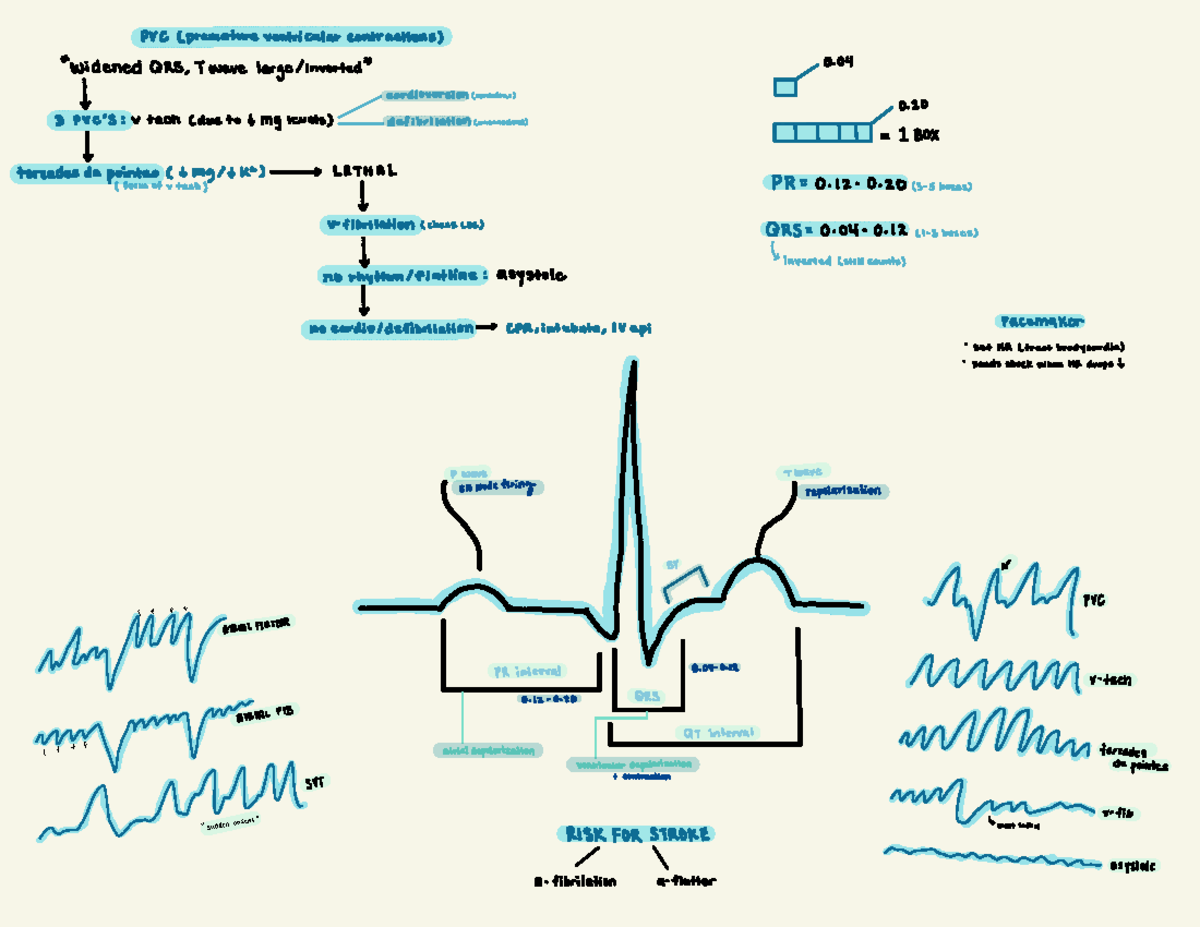 PVC (premature ventricular contractions)
"Widened QRS, T wave large/inverted"
3 PVC'S: v tach (due to ↓ mg levels)
cardioversion
defibrillation
torsades da pointes (↓ mg/↓ K+)
(form of v tach)
LETHAL
v-fibrilation
no rhythm/flatline: asystole
no cardio/defibrilation
CPR, intubate, IV epi
0.04
0.20
= 1 BOX
PR = 0.12 - 0.20 (3-5 boxes)
QRS = 0.04 - 0.12 (1-3 boxes)
inverted (still counts)
Pacemaker
• set HR (treat bradycardia)
• sends shock when HR drops ↓
P wave
SA node firing
T wave
repolarization
ST
PR interval
0.12-0.20
QRS
0.04-0.12
QT interval
atrial depolarization
ventricular depolarization
+ contraction
ATRIAL FLUTTER
ATRIAL FIB
SVT
"sudden onset"
PVC
v-tach
torsades
da pointes
v-fib
asystole
RISK FOR STROKE
a-fibrilation
a-flutter